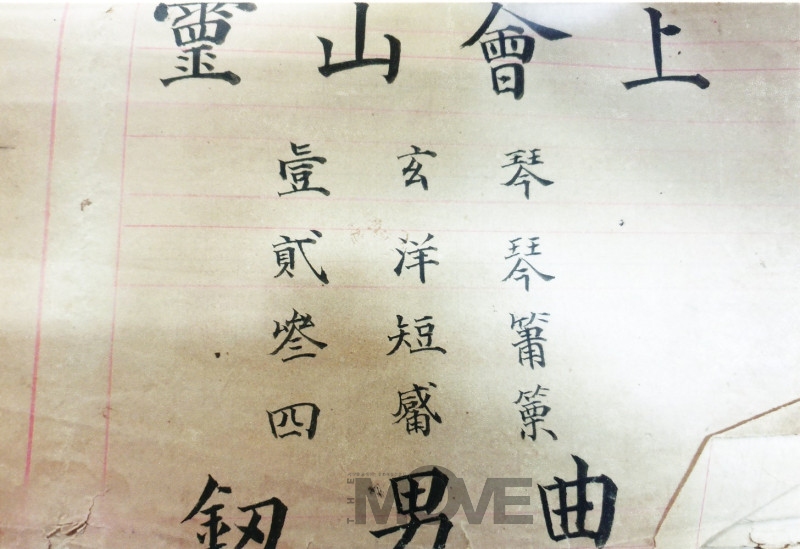 靈山會上
壹 玄琴
貳 洋琴
叄 短簫
四 觱篥
釼男曲
THE MOVE